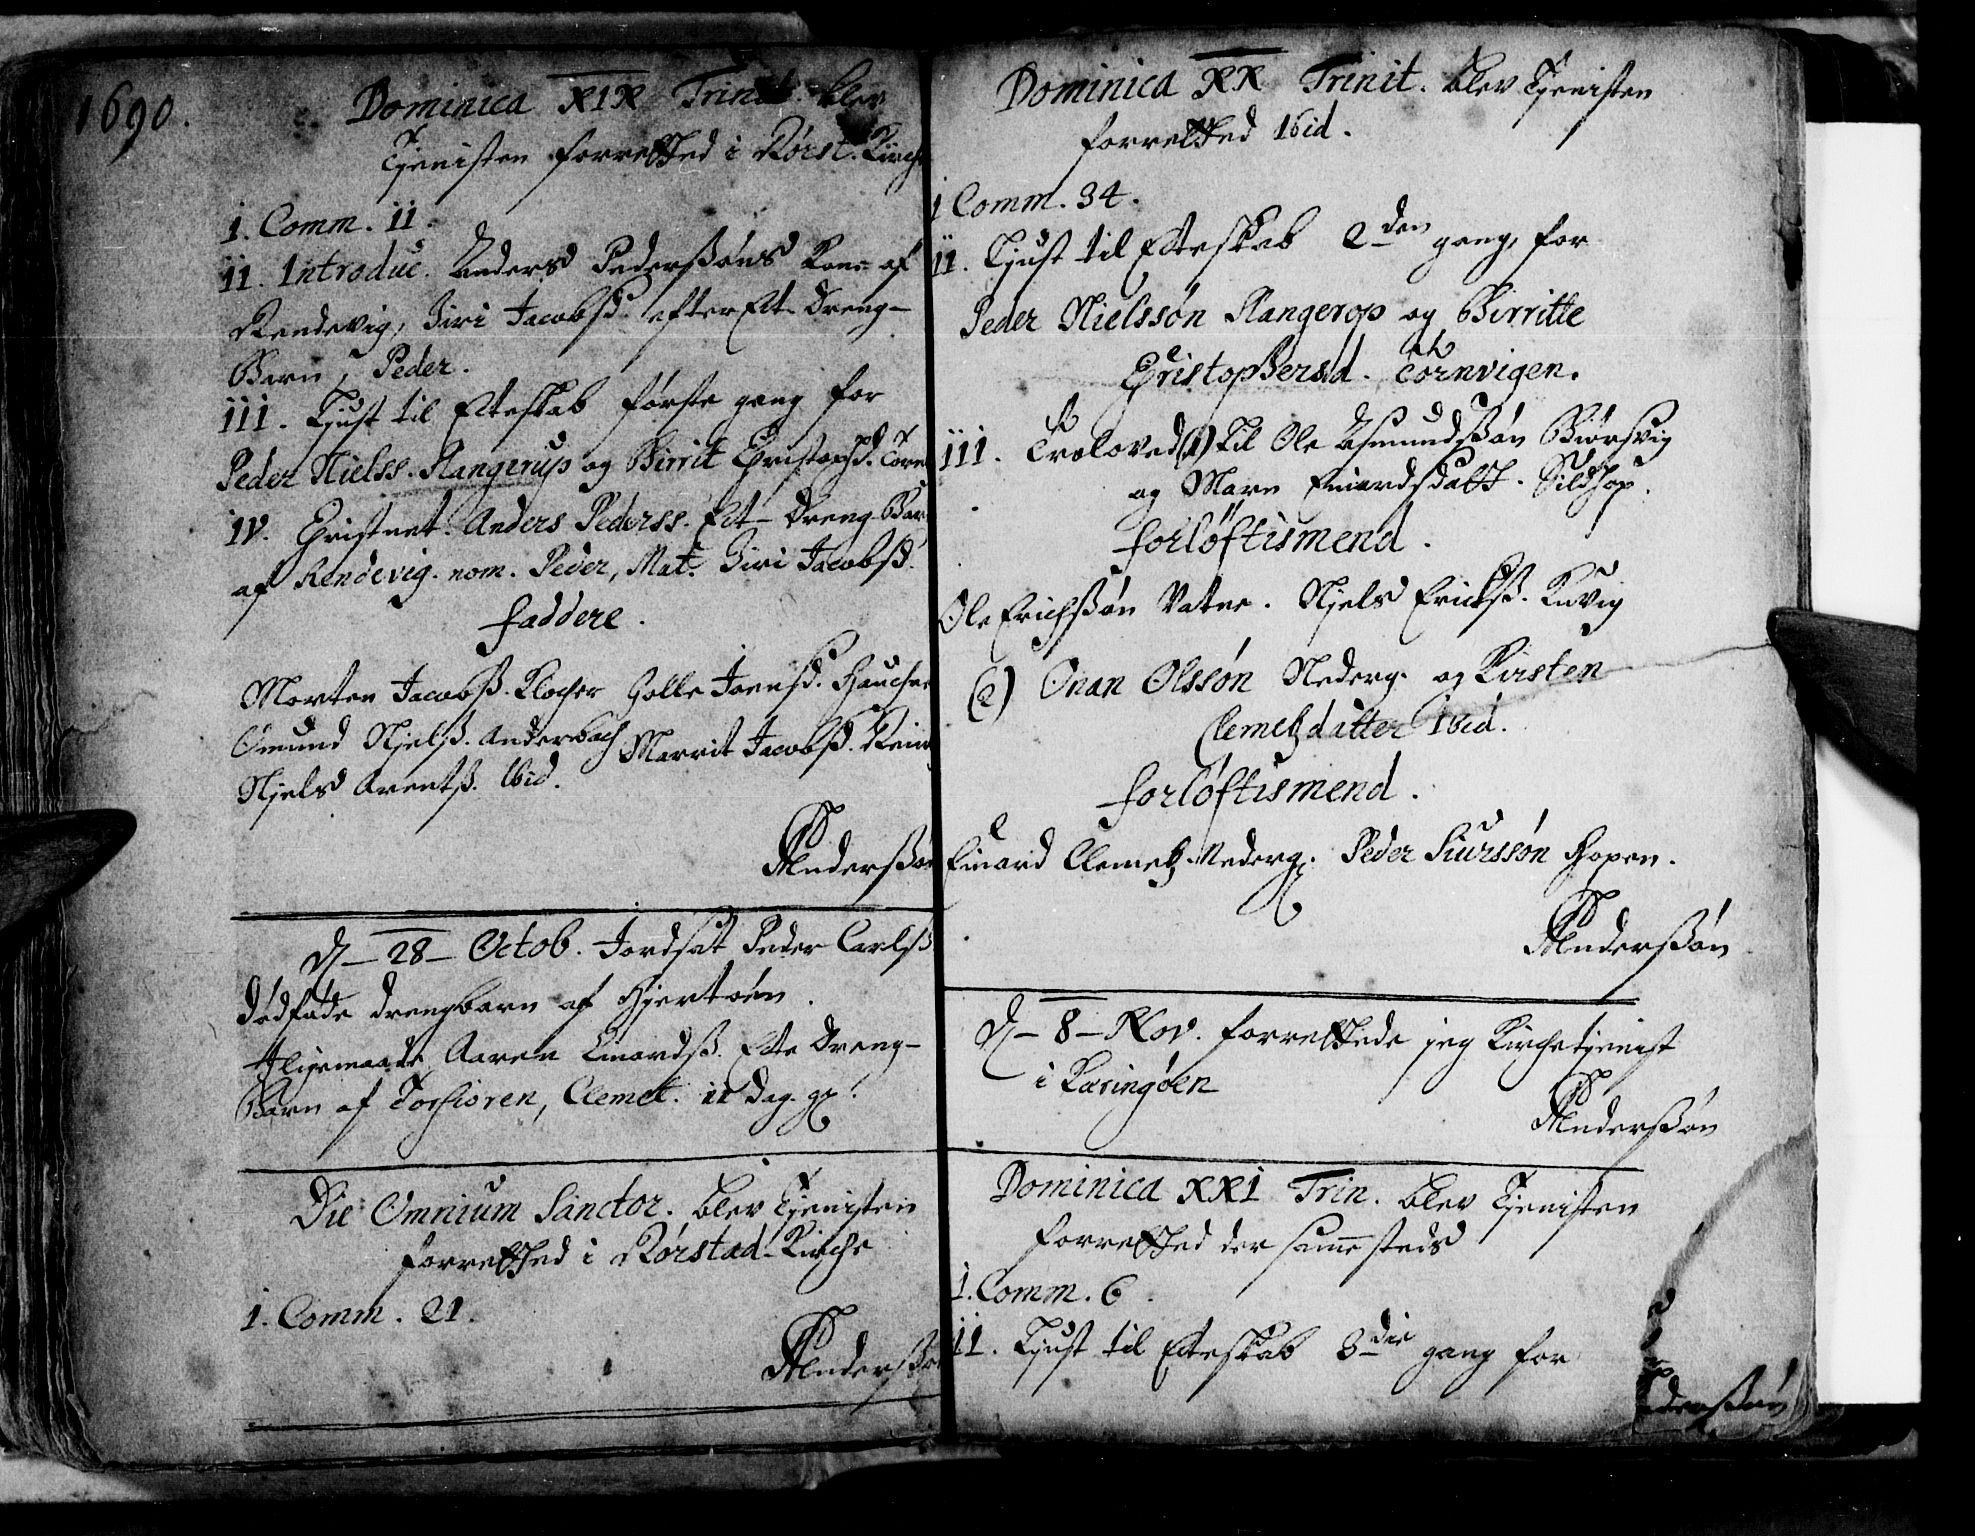 1690.
Dominica XIX Trinit. blev
Tjenisten forretted i Rørst. Kirche
i. Comm. 11.
ii. Introduc. Anders Pederssøns Kone af
Rendevig, Siri Jacobsd. efter Et Dreng-
Barn, Peder.
iii. Liust til Ecteskab første gang for
Peder Nielss. Slangerup og Birrit Christophd. Torn
iv. Christnet Anders Pederss. Et Dreng Barn
af Rendevig. nom. Peder, Mat. Siri Jacobsd.
faddere.
Morten Jacobss. Klocher Golle Joensd.
Omund Njelss. Anderbach Marrit Jacobsd.
Njels Arentss. Ibid.
Anderssøn
D. 28 Octob. Jordsat Peder Carlss.
dødføde drengbarn af Hjertøen.
Iligemaade Aaren Einardss. Ecte Dreng-
Barn af Torfioren, Clemet. 11 dag. gl.
Die Omnium Sanctor. blev Tjenisten
forretted i Rørstad Kirche
i. Comm. 21.
Anderssøn
Dominica XX Trinit. blev Tjenisten
forretted Ibid.
i Comm. 34.
ii. Liust til Ecteskab 2den gang, for
Peder Nielssøn Slangerop og Birritte
Christophersd. Tornvigen.
iii. Troloved (1) Til Ole Asmundssøn Biørsvig
og Marn Einardsdatt. Sildhop.
forløftismend.
Ole Erichssøn Vatne. Njels Erickss.
(2) Onan Olssøn Nederg. og Kirsten
Clemetzdatter Ibid.
forløftismend.
Einard Clemetz. Nederg. Peder Siurssøn Hopen.
Anderssøn
D. 8 Nov. forrettede jeg Kirchetjenist
i Karingøen
Anderssøn
Dominica XXI Trin. blev Tjenisten
forretted der sammesteds
i. Comm. 6.
ii. Liust til Ecteskab 3die gang for
derssøn